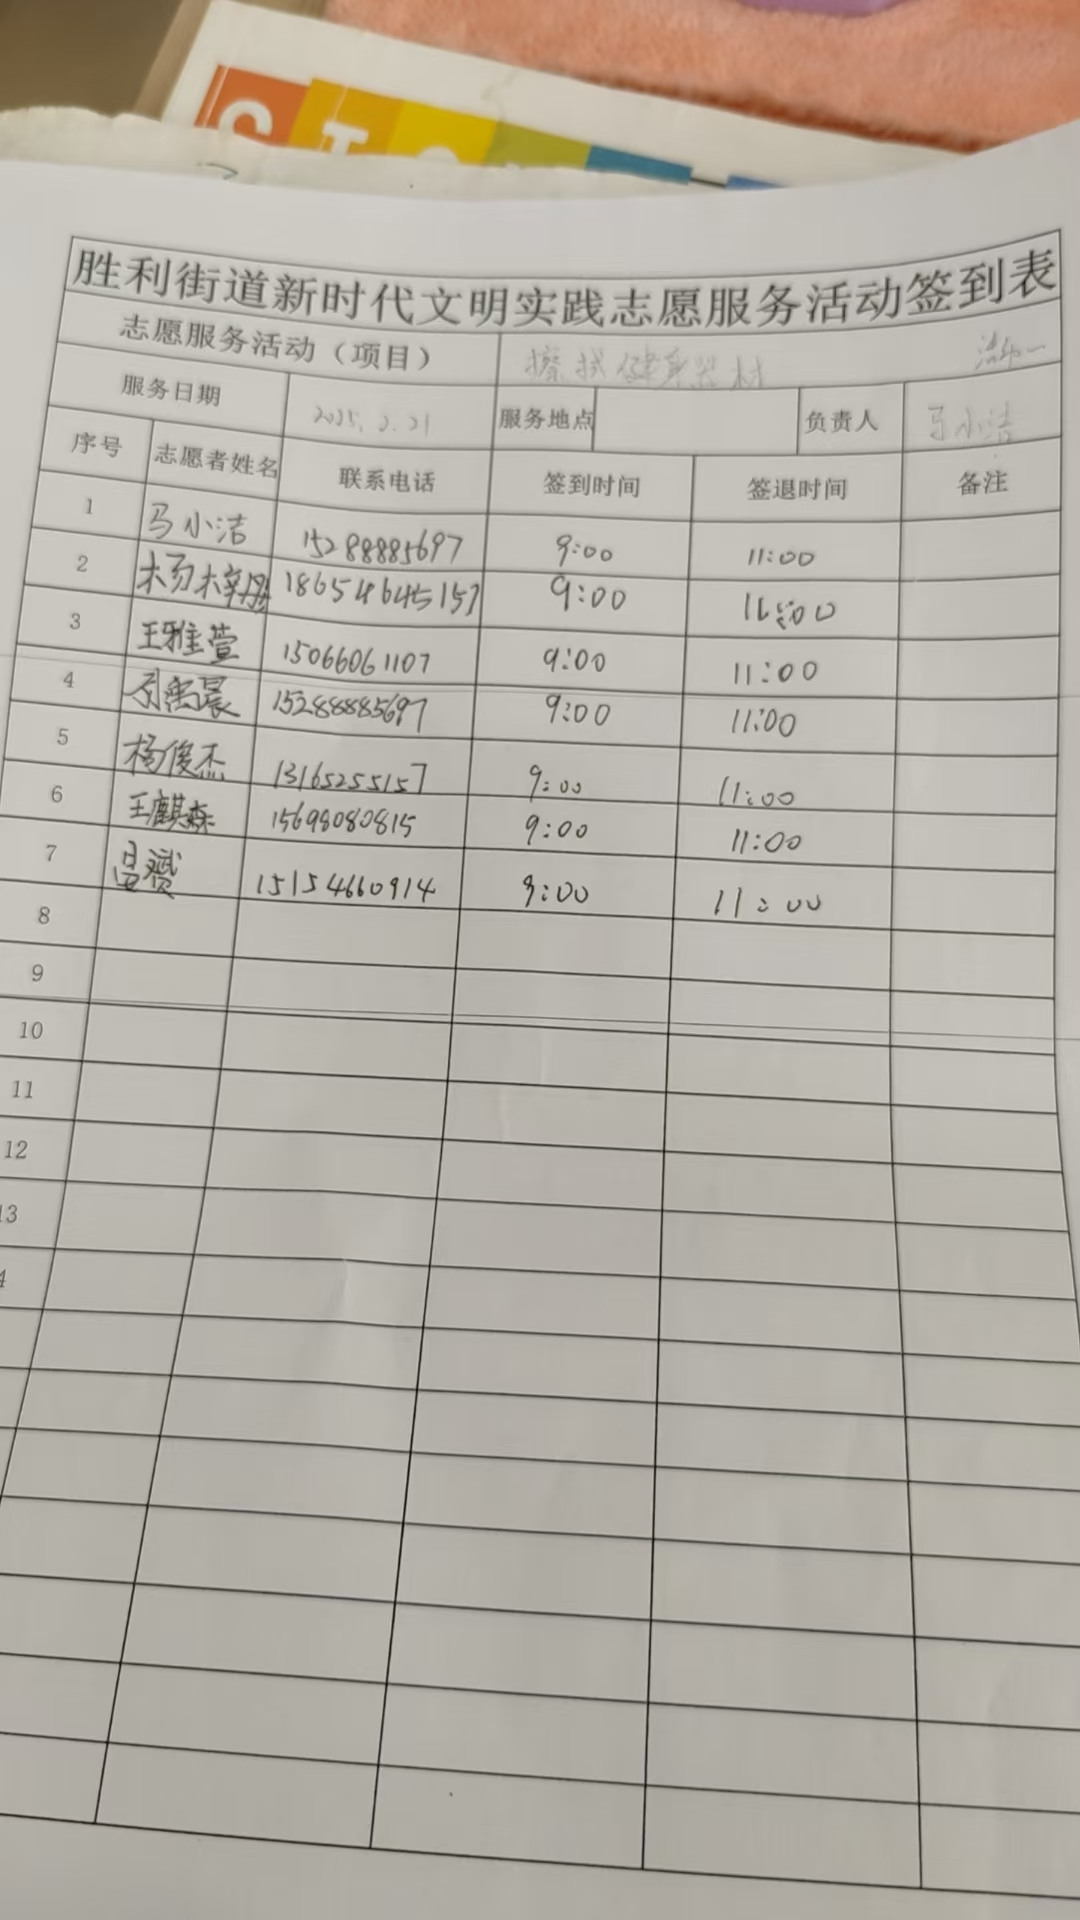 胜利街道新时代文明实践志愿服务活动签到表
志愿服务活动（项目） 擦拭健身器材
服务日期 2025.2.21 服务地点 负责人 马小洁
序号 志愿者姓名 联系电话 签到时间 签退时间 备注
1 马小洁 15288885697 9:00 11:00
2 杨梓彤 18654645157 9:00 11:00
3 王雅萱 15066061107 9:00 11:00
4 晨 15288885697 9:00 11:00
5 杨俊杰 13165255157 9:00 11:00
6 王麒森 15698080815 9:00 11:00
7 15154660914 9:00 11:00
8
9
10
11
12
13
4